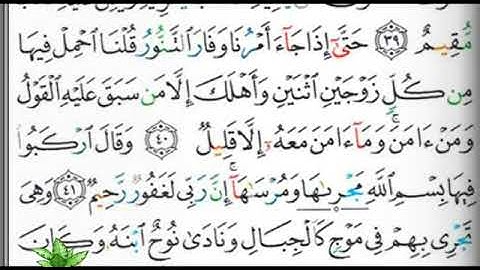 مُّقِيمٌ ٣٩ حَتَّىٰٓ إِذَا جَآءَ أَمْرُنَا وَفَارَ ٱلتَّنُّورُ قُلْنَا ٱحْمِلْ فِيهَا
مِن كُلٍّ زَوْجَيْنِ ٱثْنَيْنِ وَأَهْلَكَ إِلَّا مَن سَبَقَ عَلَيْهِ ٱلْقَوْلُ
وَمَنْ ءَامَنَ ۚ وَمَآ ءَامَنَ مَعَهُۥٓ إِلَّا قَلِيلٌ ٤٠ وَقَالَ ٱرْكَبُوا۟
فِيهَا بِسْمِ ٱللَّهِ مَجْر۪ىٰهَا وَمُرْسَىٰهَآ ۚ إِنَّ رَبِّى لَغَفُورٌ رَّحِيمٌ ٤١ وَهِىَ
تَجْرِى بِهِمْ فِى مَوْجٍ كَٱلْجِبَالِ وَنَادَىٰ نُوحٌ ٱبْنَهُۥ وَكَانَ